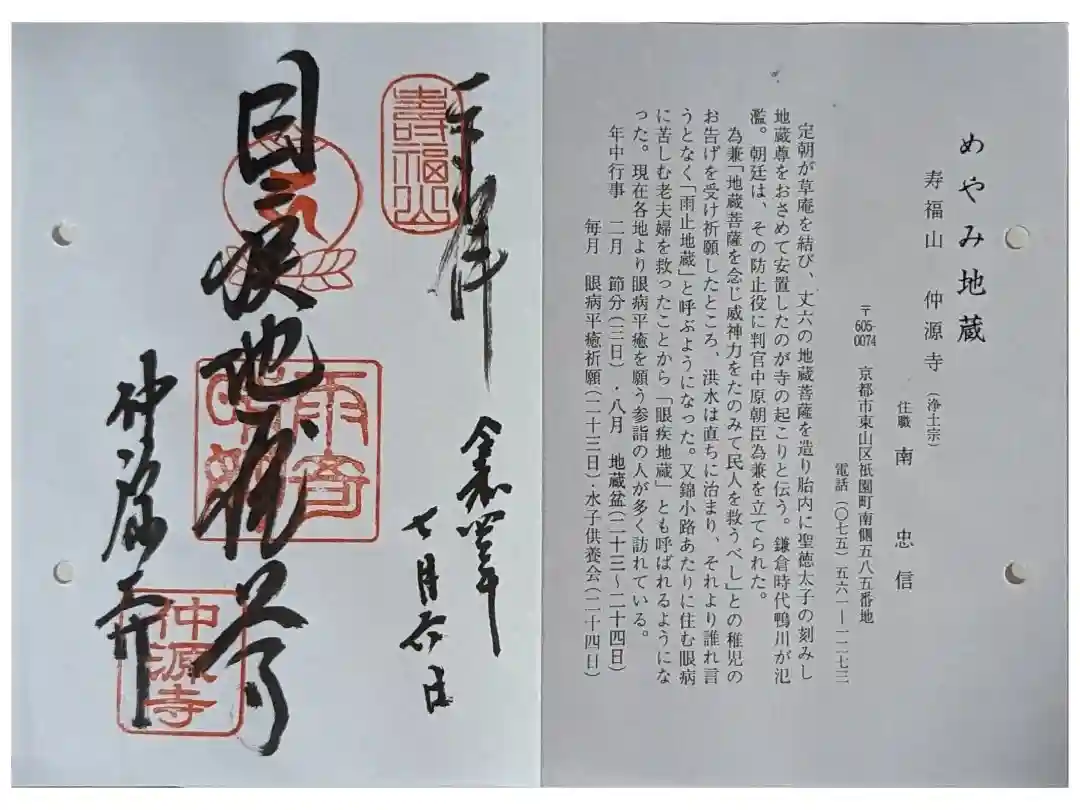 めやみ地蔵
寿福山 仲源寺 (浄土宗)
住職 南 忠信
〒605-0074 京都市東山区祇園町南側五八五番地
電話(〇七五)五六一―一二七三
定朝が草庵を結び、丈六の地蔵菩薩を造り胎内に聖徳太子の刻みし
地蔵尊をおさめて安置したのが寺の起こりと伝う。鎌倉時代鴨川が氾
濫。朝廷は、その防止役に判官中原朝臣為兼を立てられた。
為兼「地蔵菩薩を念じ威神力をたのみて民人を救うべし」との稚児の
お告げを受け祈願したところ、洪水は直ちに治まり、それより誰れ言
うとなく「雨止地蔵」と呼ぶようになった。又錦小路あたりに住む眼病
に苦しむ老夫婦を救ったことから「眼疾地蔵」とも呼ばれるようにな
った。現在各地より眼病平癒を願う参詣の人が多く訪れている。
年中行事 二月 節分(三日)・八月 地蔵盆(二十三~二十四日)
毎月 眼病平癒祈願(二十三日)・水子供養会(二十四日)
奉拝
令和四年
七月 日
壽福山
目疾地蔵尊
雨奇
仲源寺
仲源寺